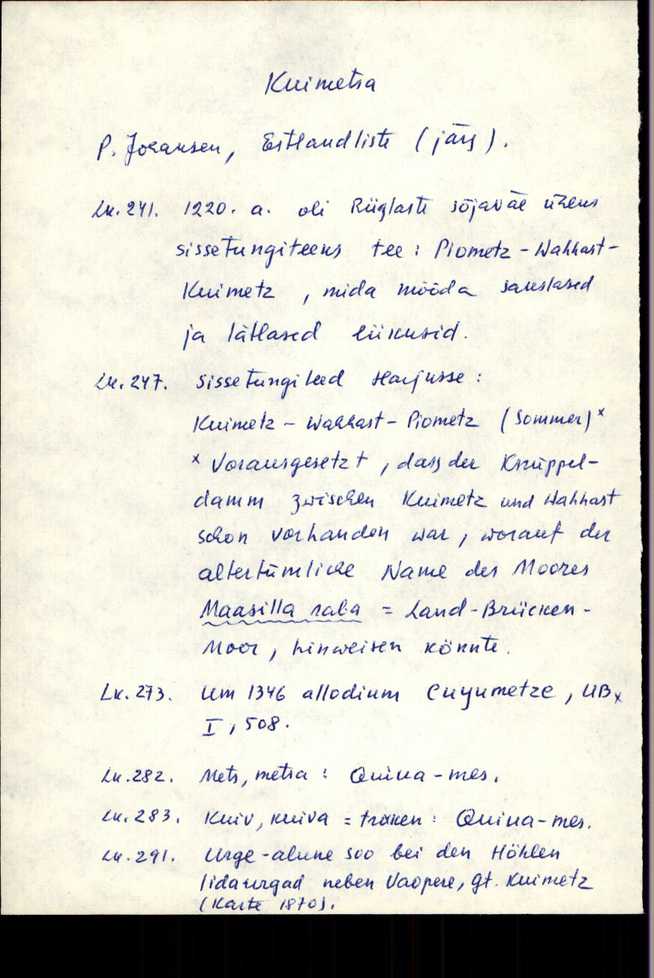 Kuimetsa
P. Johansen, Estlandliste (järg).
Lk. 241. 1220. a. oli Riiglaste sõjaväe üheks
sissetungiteeks tee: Piometz - Wahhast -
Kuimetz, mida mööda sakslased
ja lätlased liikusid.
Lk. 247. Sissetungiteed Harjusse:
Kuimetz - Wahhast - Piometz (Sommer) x
x Vorausgesetzt, dass der Knüppel-
damm zwischen Kuimetz und Wahhast
schon vorhanden war, worauf der
altertümliche Name des Moores
Maasilla raba = Land-Brücken-
Moor, hinweisen könnte.
Lk. 273. Um 1346 allodium Cuyumetze, UB x
I, 508.
Lk. 282. Mets, metsa: Quiua-mes.
Lk. 283. Kuiv, kuiva = troken: Quiua-mes.
Lk. 291. Urge-alune soo bei den Höhlen
Iidaurgad neben Vaopere, gt. Kuimetz
(Karte 1870).